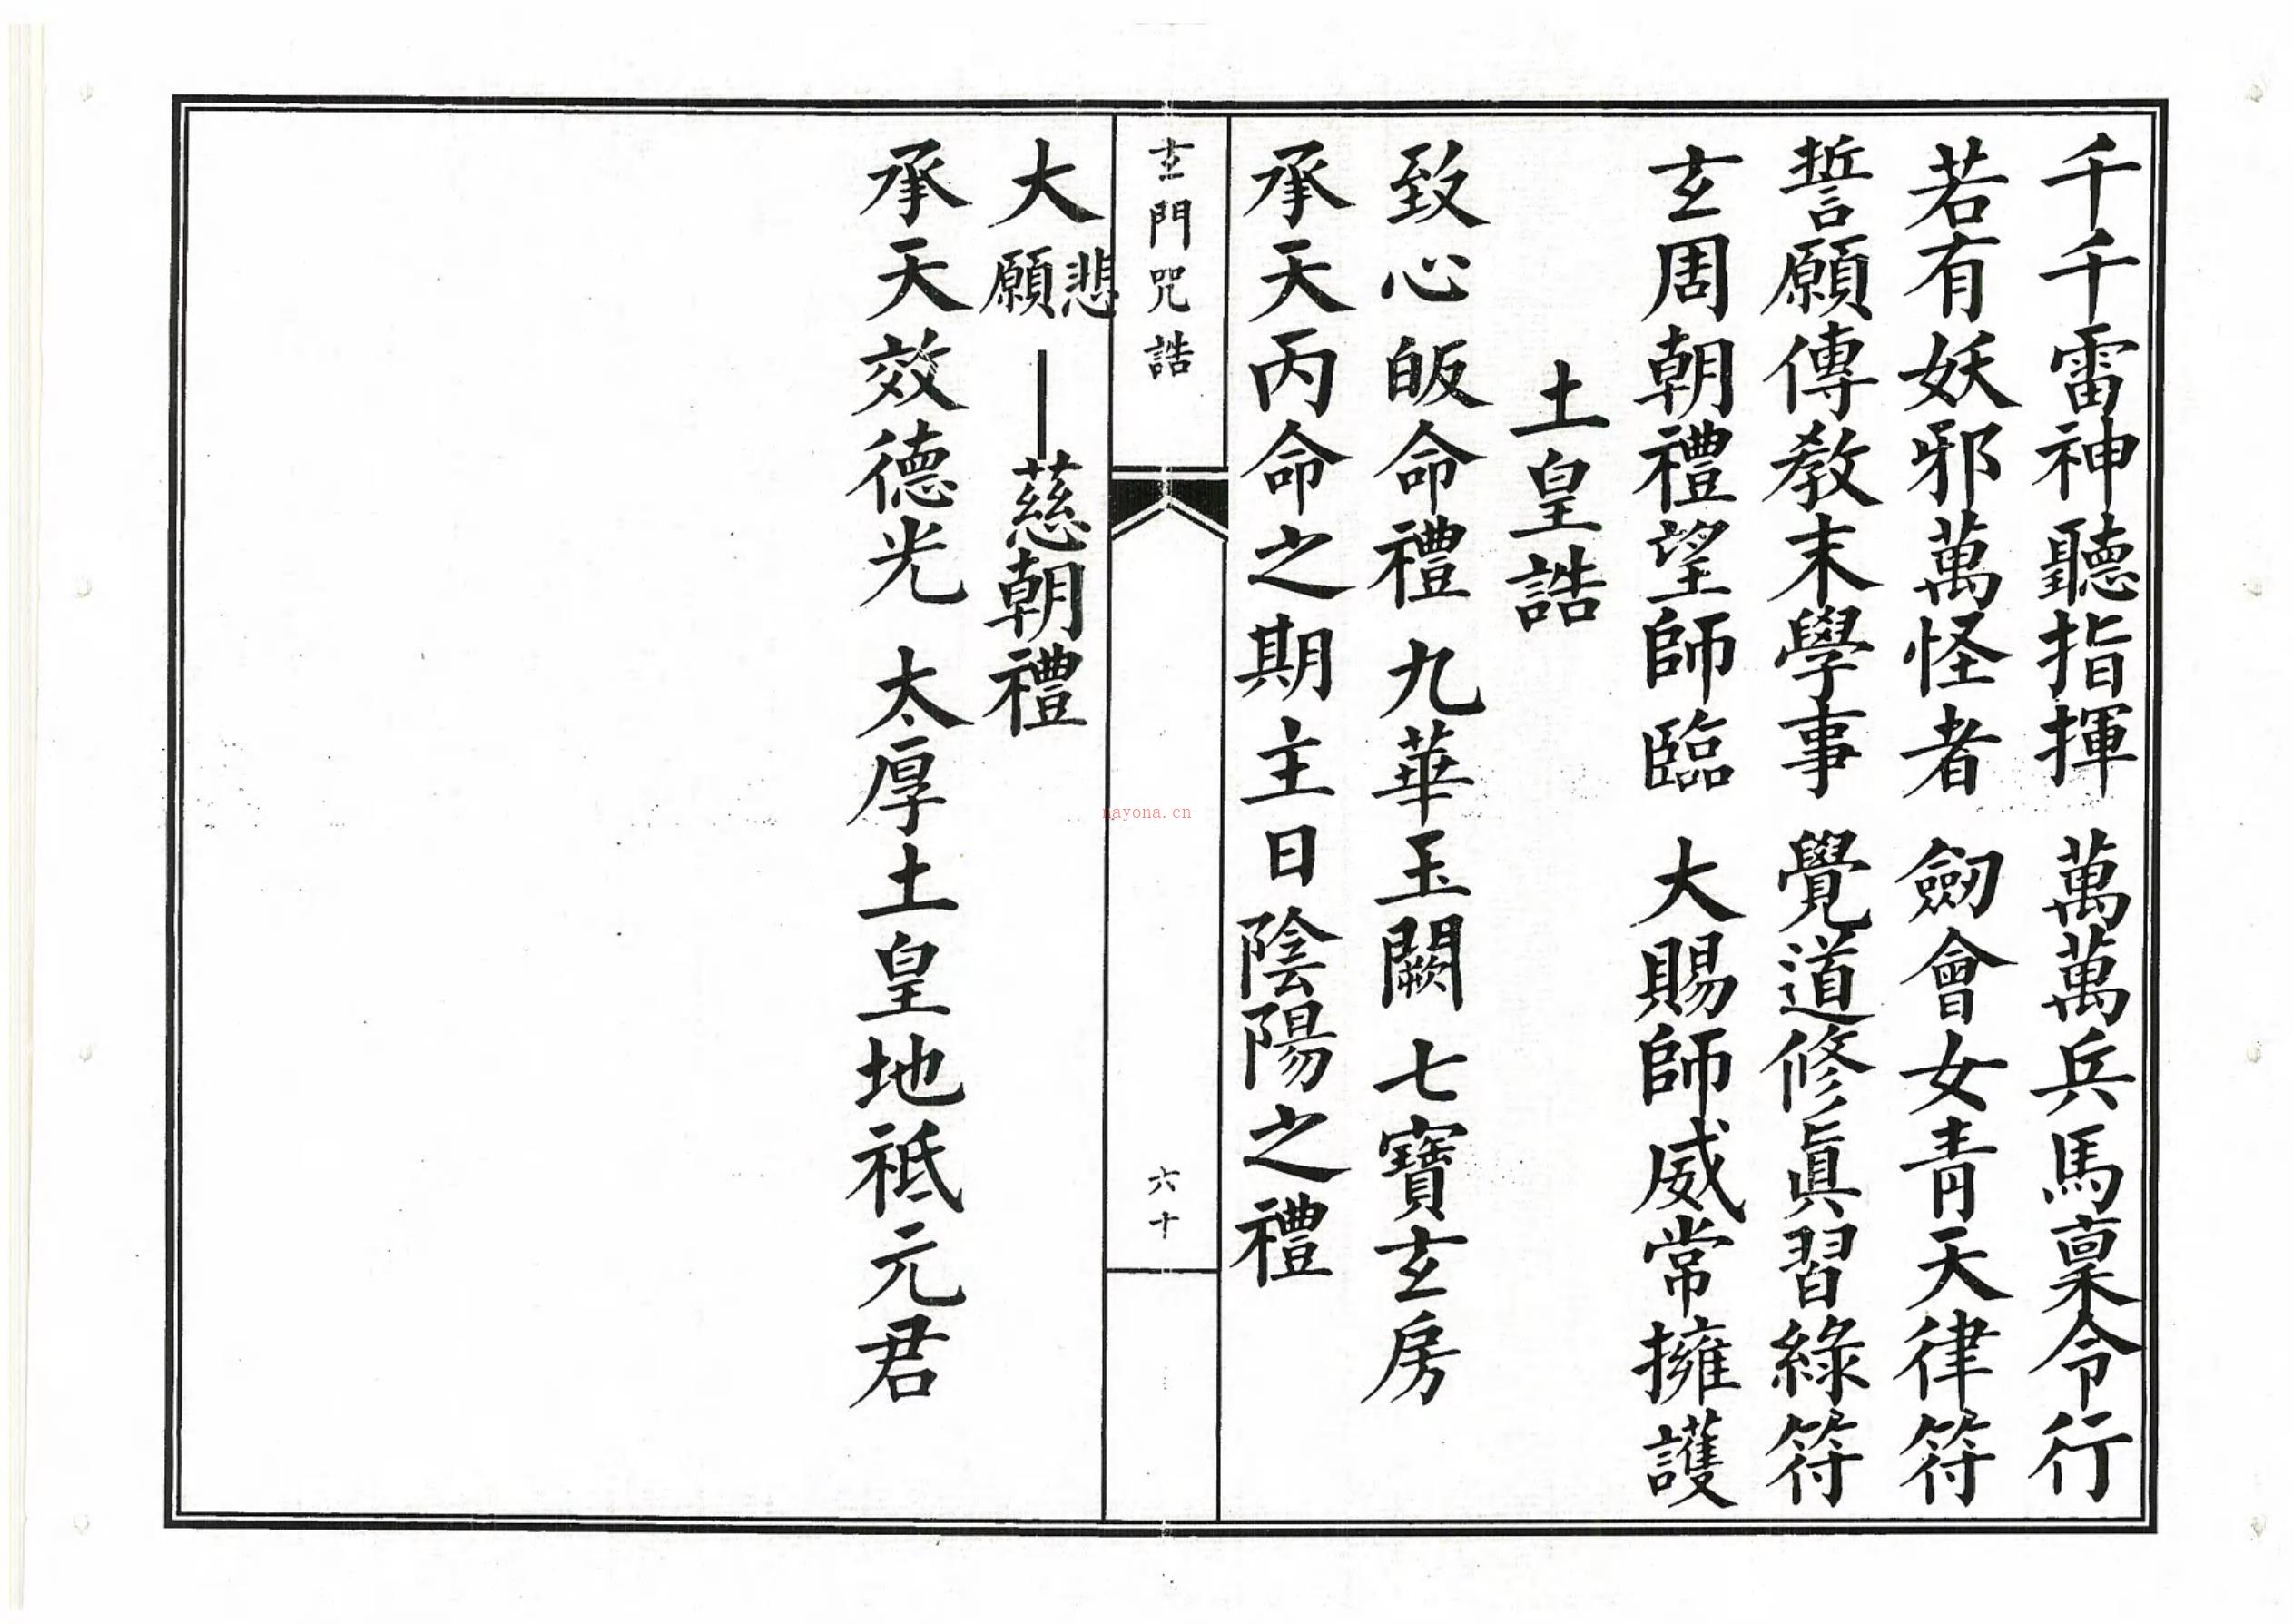 千千雷神聽指揮 萬萬兵馬稟令行
若有妖邪萬怪者 劒會女青天律符
誓願傳教末學事 覺道修眞習綠符
玄周朝禮望師臨 大賜師威常擁護
土皇誥
致心皈命禮 九華玉闕 七寶玄房
承天丙命之期主日陰陽之禮
玄門咒誥
六十
大悲願｜慈朝禮
承天效德光 太厚土皇地祗元君
nayona.cn